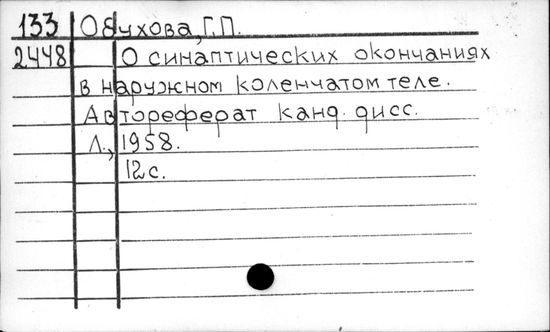 133 Обухова, Г.П.
2448 О синаптических окончаниях
в наружном коленчатом теле.
Автореферат канд. дисс.
Л., 1958.
12 с.